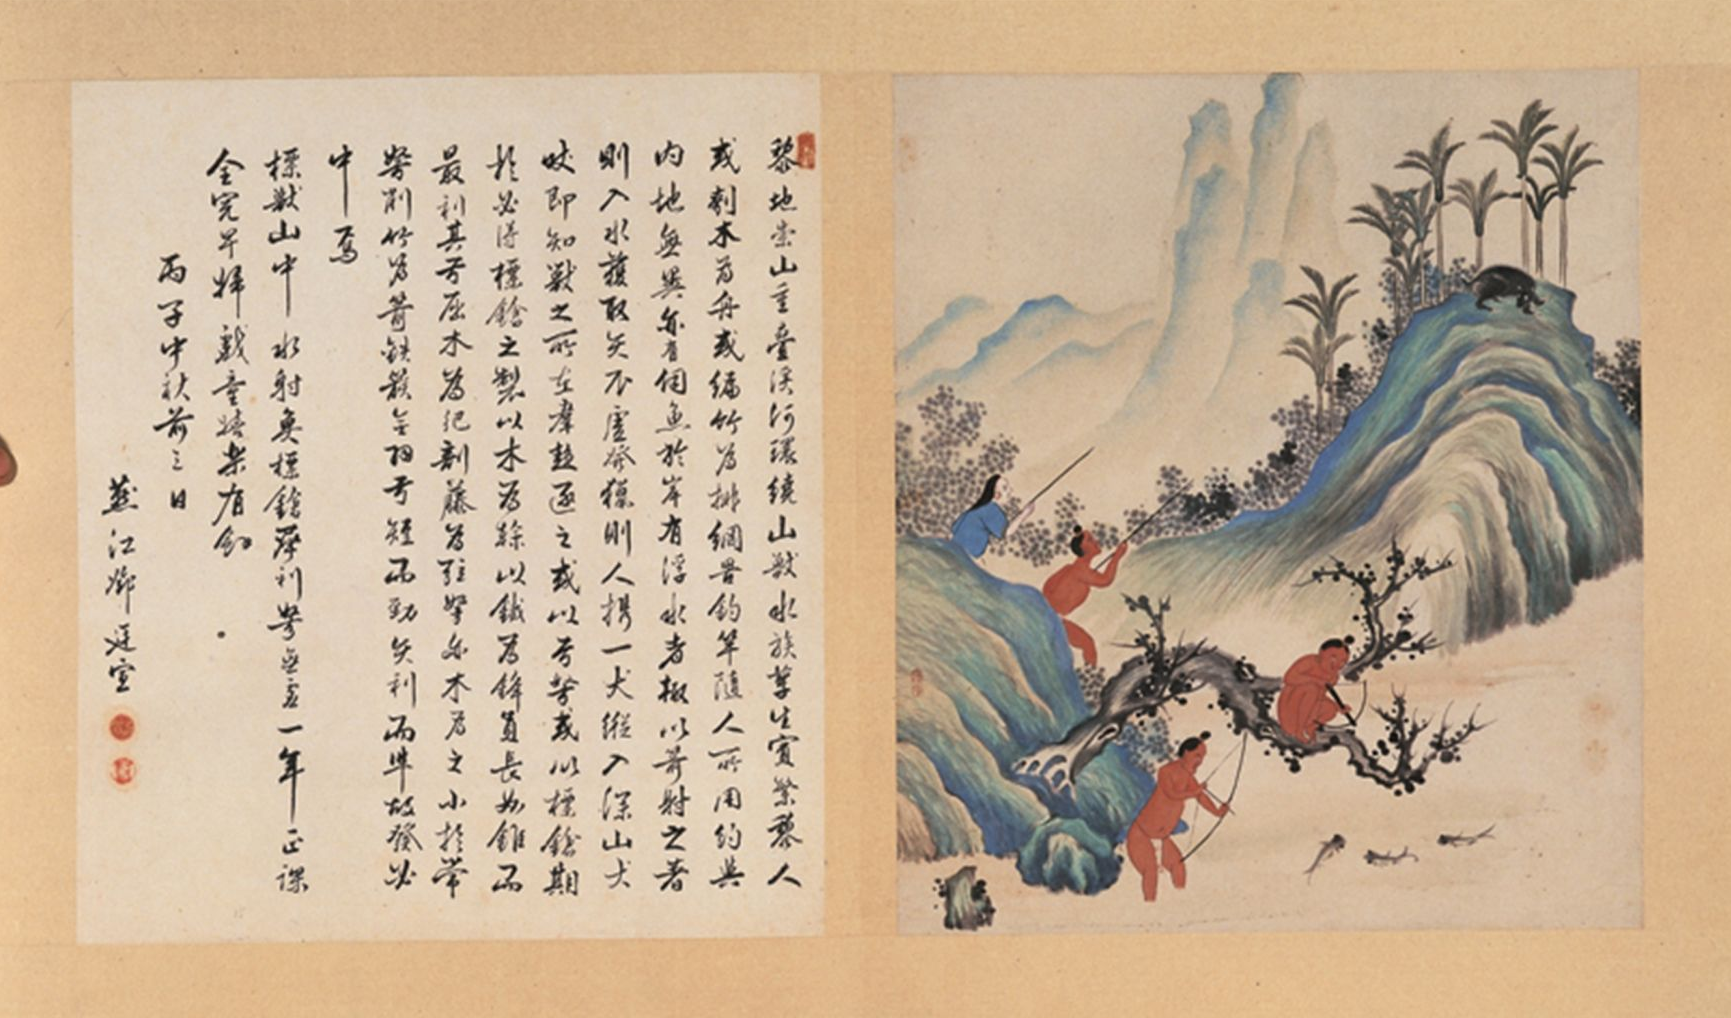 黎地崇山重疊溪河環繞山獸水族孳生實繁黎人
或刳木為舟或編竹為排網罟釣竿隨人所用約與
内地無異亦有伺魚於岸有浮水者輒以箭射之著
則入水獲取矢不虛發獵則人携一犬縱入深山犬
吠即知獸之所在羣趨逐之或以弓弩或以標鎗期
於必得標鎗之製以木為榦以鐵為鋒員長如錐而
最利其弓屈木為弝剖藤為弦弩亦木為之小於常
弩削竹為箭鉄簇無羽弓短而勁矢利而準故發必
中焉
標獸山中水射魚標鎗利弩無虛一年正課
全完早婦戲童嬉樂有餘
丙子中秋前三日
燕江鄧廷宣